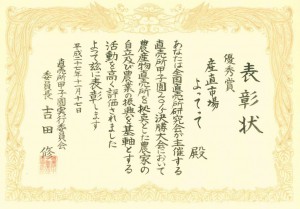 表彰状
優秀賞
産直市場
よってって 殿
あなたは全国直売所研究会が主催する
直売所甲子園二〇一五決勝大会において
農産物直売所を拠点とした農家の
自立及び農業の振興を基軸とする
活動を高く評価されました
よって茲に表彰します
平成二十七年十一月十七日
直売所甲子園実行委員会
委員長 吉田 修